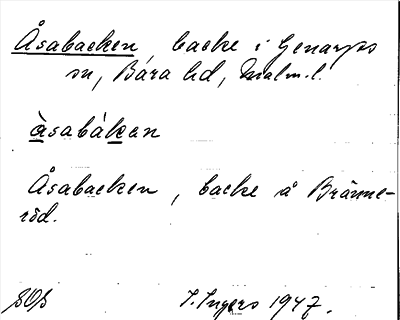 Åsabacken, backe i Genarps
sn, Bara hd, Malm.l.
àsabákan
Åsabacken, backe å Bränne-
röd.
I. Ingers 1947.